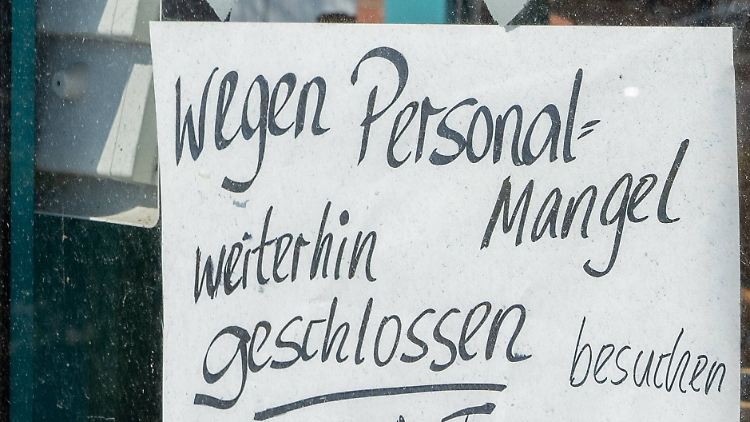 Wegen Personal=
Mangel
weiterhin
geschlossen
besuchen